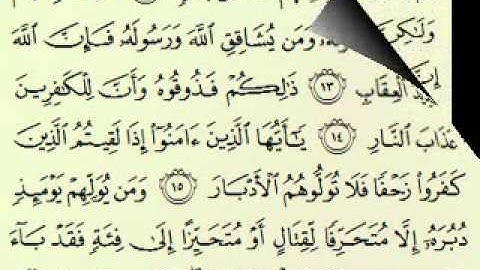 وَمَن يُشَاقِقِ ٱللَّهَ وَرَسُولَهُۥ فَإِنَّ ٱللَّهَ
ٱلْعِقَابِ ١٣ ذَٰلِكُمْ فَذُوقُوهُ وَأَنَّ لِلْكَٰفِرِينَ
عَذَابَ ٱلنَّارِ ١٤ يَٰٓأَيُّهَا ٱلَّذِينَ ءَامَنُوٓا۟ إِذَا لَقِيتُمُ ٱلَّذِينَ
كَفَرُوا۟ زَحْفًا فَلَا تُوَلُّوهُمُ ٱلْأَدْبَارَ ١٥ وَمَن يُوَلِّهِمْ يَوْمَئِذٍ
دُبُرَهُۥٓ إِلَّا مُتَحَرِّفًا لِّقِتَالٍ أَوْ مُتَحَيِّزًا إِلَىٰ فِئَةٍ فَقَدْ بَآءَ